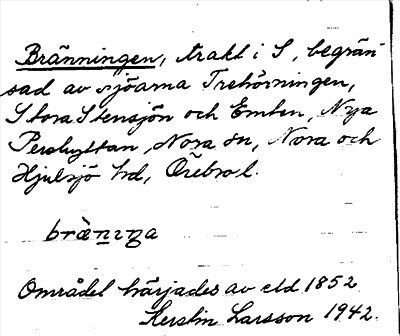 Bränningen, trakt i S, begrän-
sad av sjöarna Trehörningen,
Stora Stensjön och Emten, Nya
Pershyttan, Nora sn, Nora och
Hjulsjö hd, Örebro l.
Området härjades av eld 1852.
Kerstin Larsson 1942.